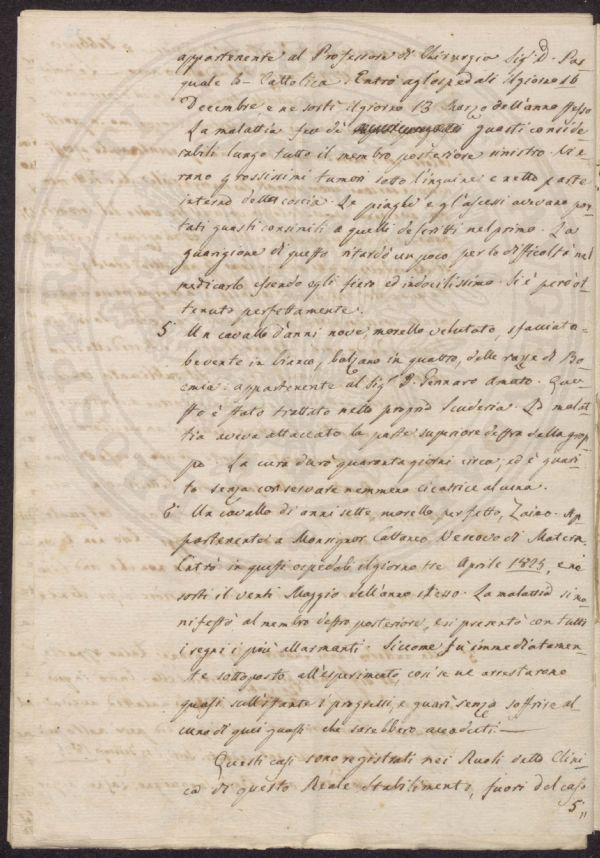 appartenente al Professore di Chirurgia Sig.r D. Pas
quale lo Cattolica. Entrò agl'ospedali il giorno 16
Decembre e ne sortì il giorno 13 Marzo dell'anno stesso
La malattia fece dè guasti conside
rabili lungo tutto il membro posteriore sinistro. Vi e
rano grossissimi tumori sotto l'inguine e nella parte
interna della coscia. Le piaghe e gl'ascessi avevano por
tati guasti consimili a quelli descritti nel primo. La
guarigione di questo ritardò un poco per la difficoltà nel
medicarlo essendo egli fiero ed indocilissimo. Si è però ot
tenuta perfettamente.
5° Un cavallo d'anni nove, morello velutato, sfacciato
bevente in bianco, balzano in quattro, della razza di Bo
emia. appartenente al Sig.r D. Gennaro Amato. Que
sto è stato trattato nella propria Scuderia. La malat
tia aveva attaccato la parte superiore destra della grop
pa. La cura durò quaranta giorni circa, ed è guari
to senza conservare nemmeno cicatrice alcuna.
6° Un cavallo di anni sette morello perfetto, Zaino. Ap
partenente a Monsignor Cattaneo Vescovo di Matera.
Entrò in questi ospedali il giorno tre Aprile 1825, e nè
sortì il venti Maggio dell'anno stesso. La malattia si ma
nifestò al membro destro posteriore, e si presentò con tutti
i segni i più allarmanti. Siccome fù immediatamen
te sottoposto all'esperimento, così se ne arrestarono
quasi sull'istante i progressi, e guarì senza soffrire al
cuno di quei guasti che sarebbero accaduti.—
Questi casi sono registrati nei Ruoli della Clini
ca di questo Reale Stabilimento, fuori del caso
5"